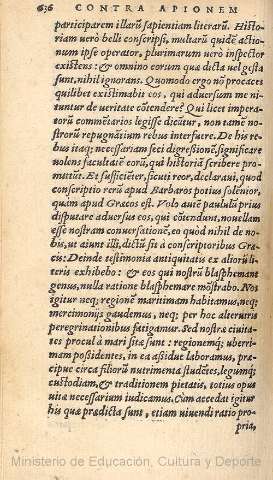 636 CONTRA APIONEM
participarem illarū sapientiam literarū. Histo-
riam uerò belli conscripsi, multarū quidē actio-
num ipse operator, plurimarum uerò inspector
existens: & omnino eorum quæ dicta uel gesta
sunt, nihil ignorans. Quomodo ergo nō procaces
quilibet existimabit eos, qui aduersum me ni-
tuntur de ueritate cōtendere? Qui licet impera-
torū cōmētarios legisse dicātur, non tamē no-
strorū repugnātium rebus interfuere. De his re-
bus itaq; necessariam feci digreßionē, significare
uolens facultatē eorū, qui historiā scribere pro-
mittūt. Et sufficiēter, sicuti reor, declaraui, quod
conscriptio rerū apud Barbaros potius solēnior,
quàm apud Græcos est. Volo autē paululū prius
disputare aduersus eos, qui cōtendunt, nouellam
esse nostram conuersationē, eo quòd nihil de no-
bis, ut aiunt illi, dictū sit à conscriptoribus Græ-
cis: Deinde testimonia antiquitatis ex aliorū li-
teris exhibebo: & eos qui nostrū blasphemant
genus, nulla ratione blasphemare mōstrabo. Nos
igitur neq; regionē maritimam habitamus, neq;
mercimonijs gaudemus, neq; per hoc alterutris
peregrinationibus fatigamur. Sed nostræ ciuita-
tes procul à mari sitæ sunt: regionemq; uberri-
mam poßidentes, in ea aßiduè laboramus, præ-
cipuè circa filiorū nutrimenta studētes, legumq;
custodiam, & traditionem pietatis, totius opus
uitæ necessarium iudicamus. Cùm accedat igitur
his quæ prædicta sunt, etiam uiuendi ratio pro-
pria,
Ministerio de Educación, Cultura y Deporte